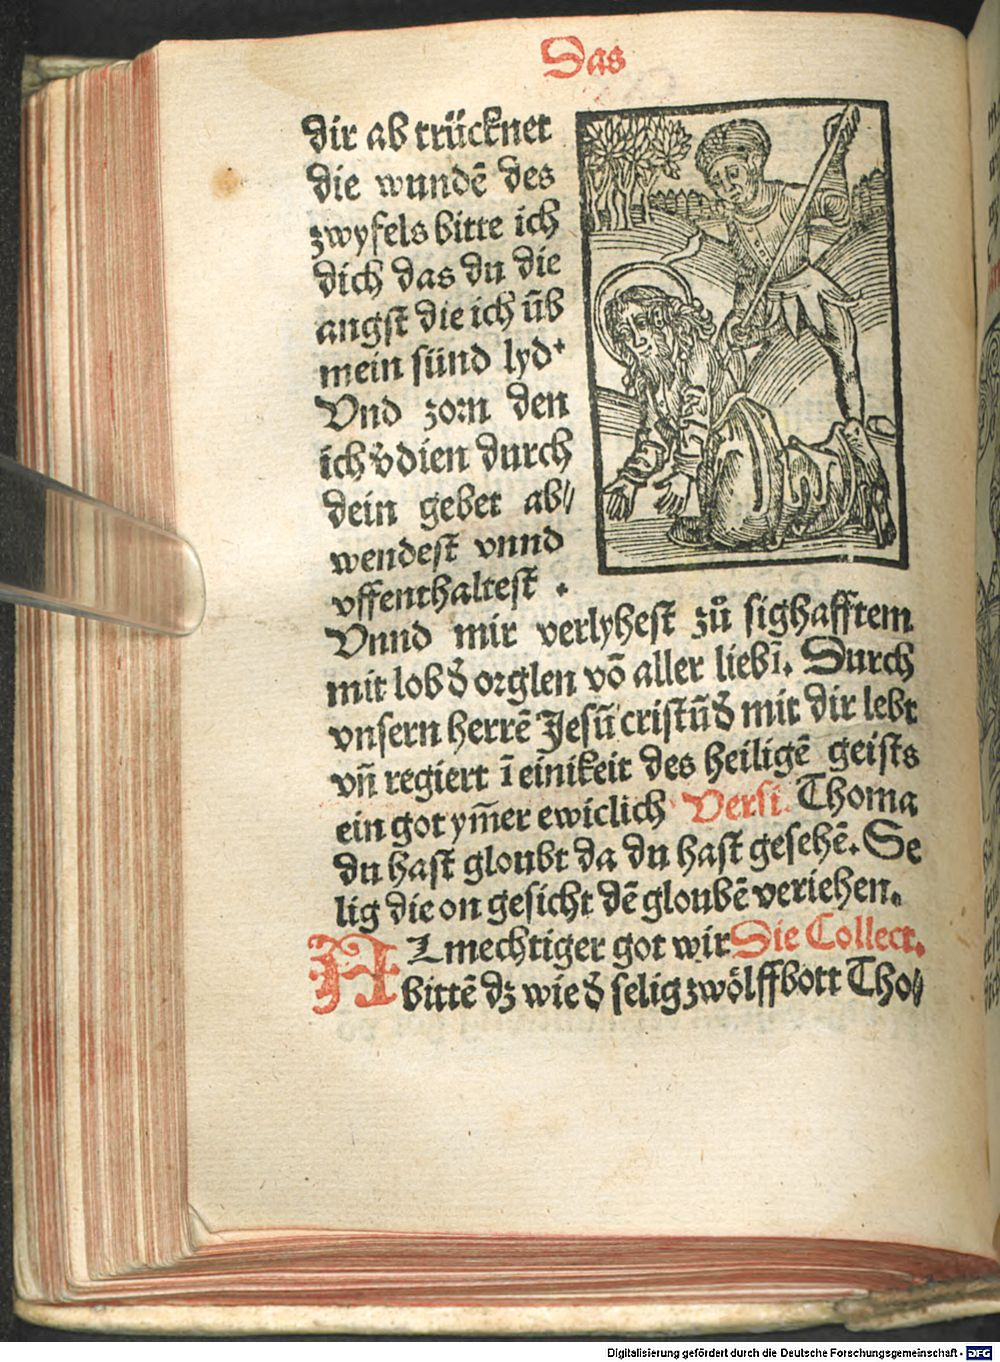 Das
dir ab trücknet
die wundē des
zwyfels bitte ich
dich das du die
angst die ich ūb
mein sünd lyd⁺
Vnd zorn den
ich v̄dien durch
dein gebet ab⸗
wendest vnnd
vffenthaltest .
Vnnd mir verlyhest zů sighafftem
mit lob d̄ orglen vō aller liebī. Durch
vnsern herrē Jesū cristū d̄ mit dir lebt
vn̄ regiert ī einikeit des heiligē geists
ein got ym̄er ewiclich Versi. Thoma
du hast gloubt da du hast gesehē. Se
lig die on gesicht dē gloubē veriehen.
ALmechtiger got wir Die Collect.
bittē dz wie d̄ selig zwölffbott Tho⸗
Digitalisierung gefördert durch die Deutsche Forschungsgemeinschaft - DFG